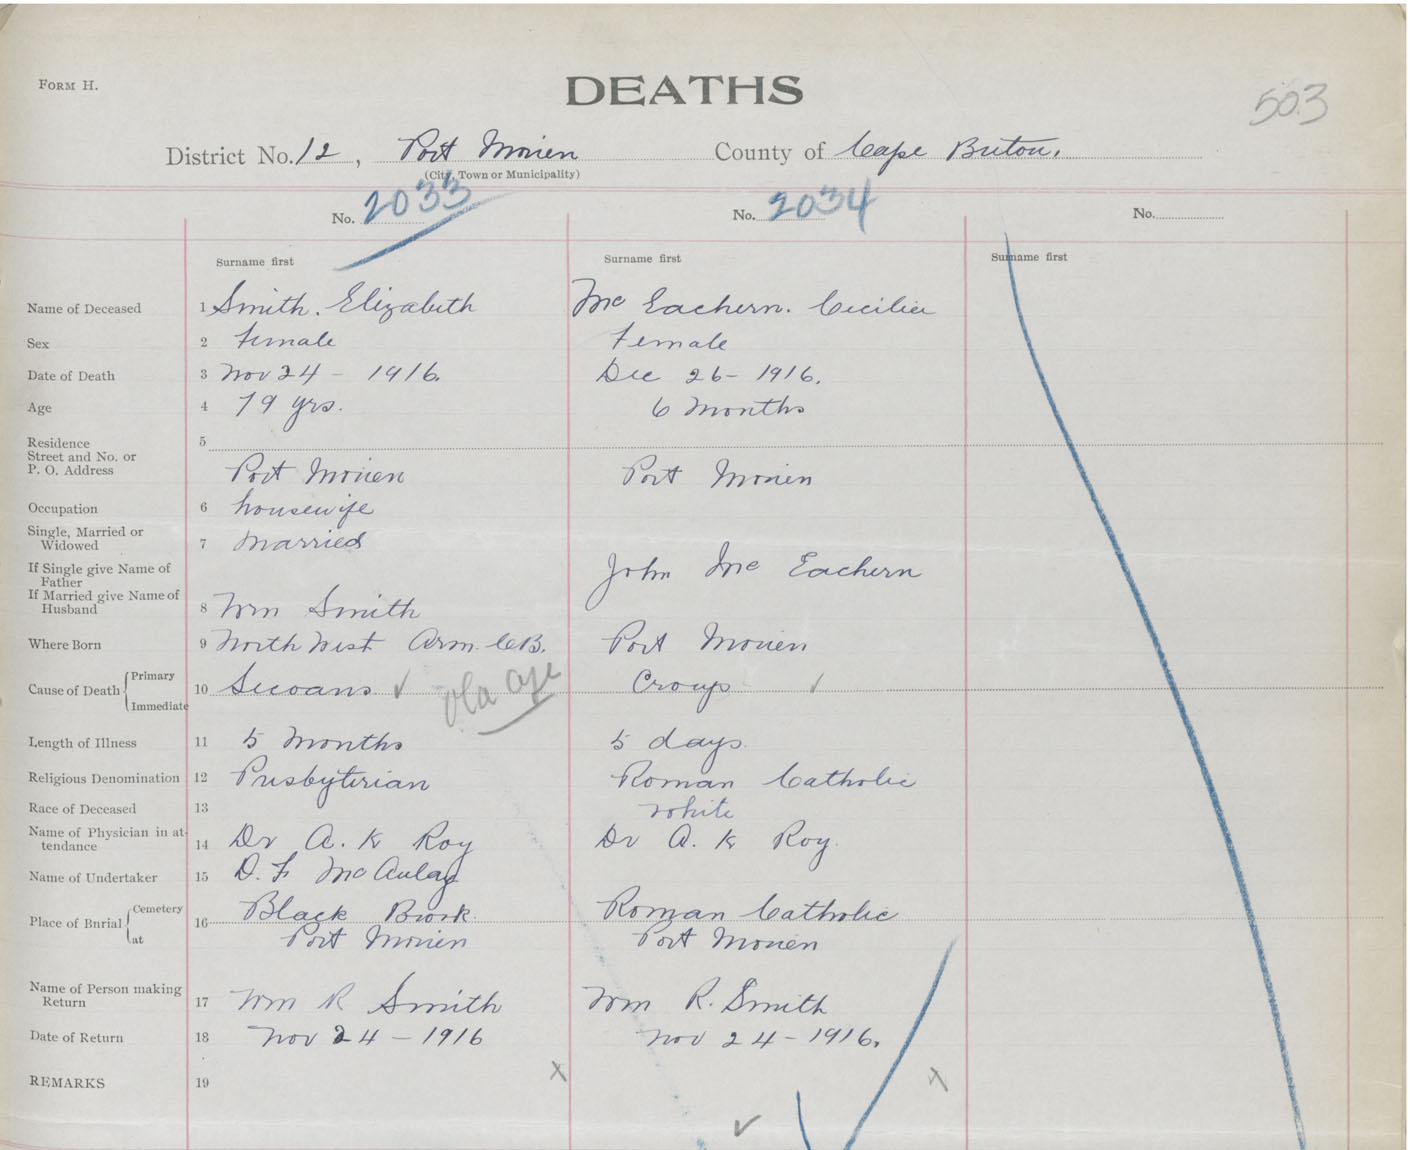 FORM H.
DEATHS
503
District No. 12, Port Morien County of Cape Breton.
(City, Town or Municipality)
No. 2033 No. 2034 No.
Surname first Surname first Surname first
Name of Deceased 1 Smith. Elizabeth Mc Eachern. Cecilia
Sex 2 Female Female
Date of Death 3 Nov 24 - 1916. Dec 26 - 1916.
Age 4 79 yrs. 6 Months
Residence 5
Street and No. or
P. O. Address Port Morien Port Morien
Occupation 6 housewife
Single, Married or
Widowed 7 Married
If Single give Name of
Father John Mc Eachern
If Married give Name of
Husband 8 Wm Smith
Where Born 9 North West Arm. C.B. Port Morien
Cause of Death Primary 10 old age Croup
Immediate
Length of Illness 11 5 Months 5 days
Religious Denomination 12 Presbyterian Roman Catholic
Race of Deceased 13 White
Name of Physician in at-
tendance 14 Dr A. K Roy Dr A. K Roy.
Name of Undertaker 15 D. F McAulay
Place of Bnrial Cemetery 16 Black Brook. Roman Catholic
at Port Morien Port Morien
Name of Person making
Return 17 Wm R Smith Wm R. Smith
Date of Return 18 Nov 24 - 1916 Nov 24 - 1916.
REMARKS 19 x x